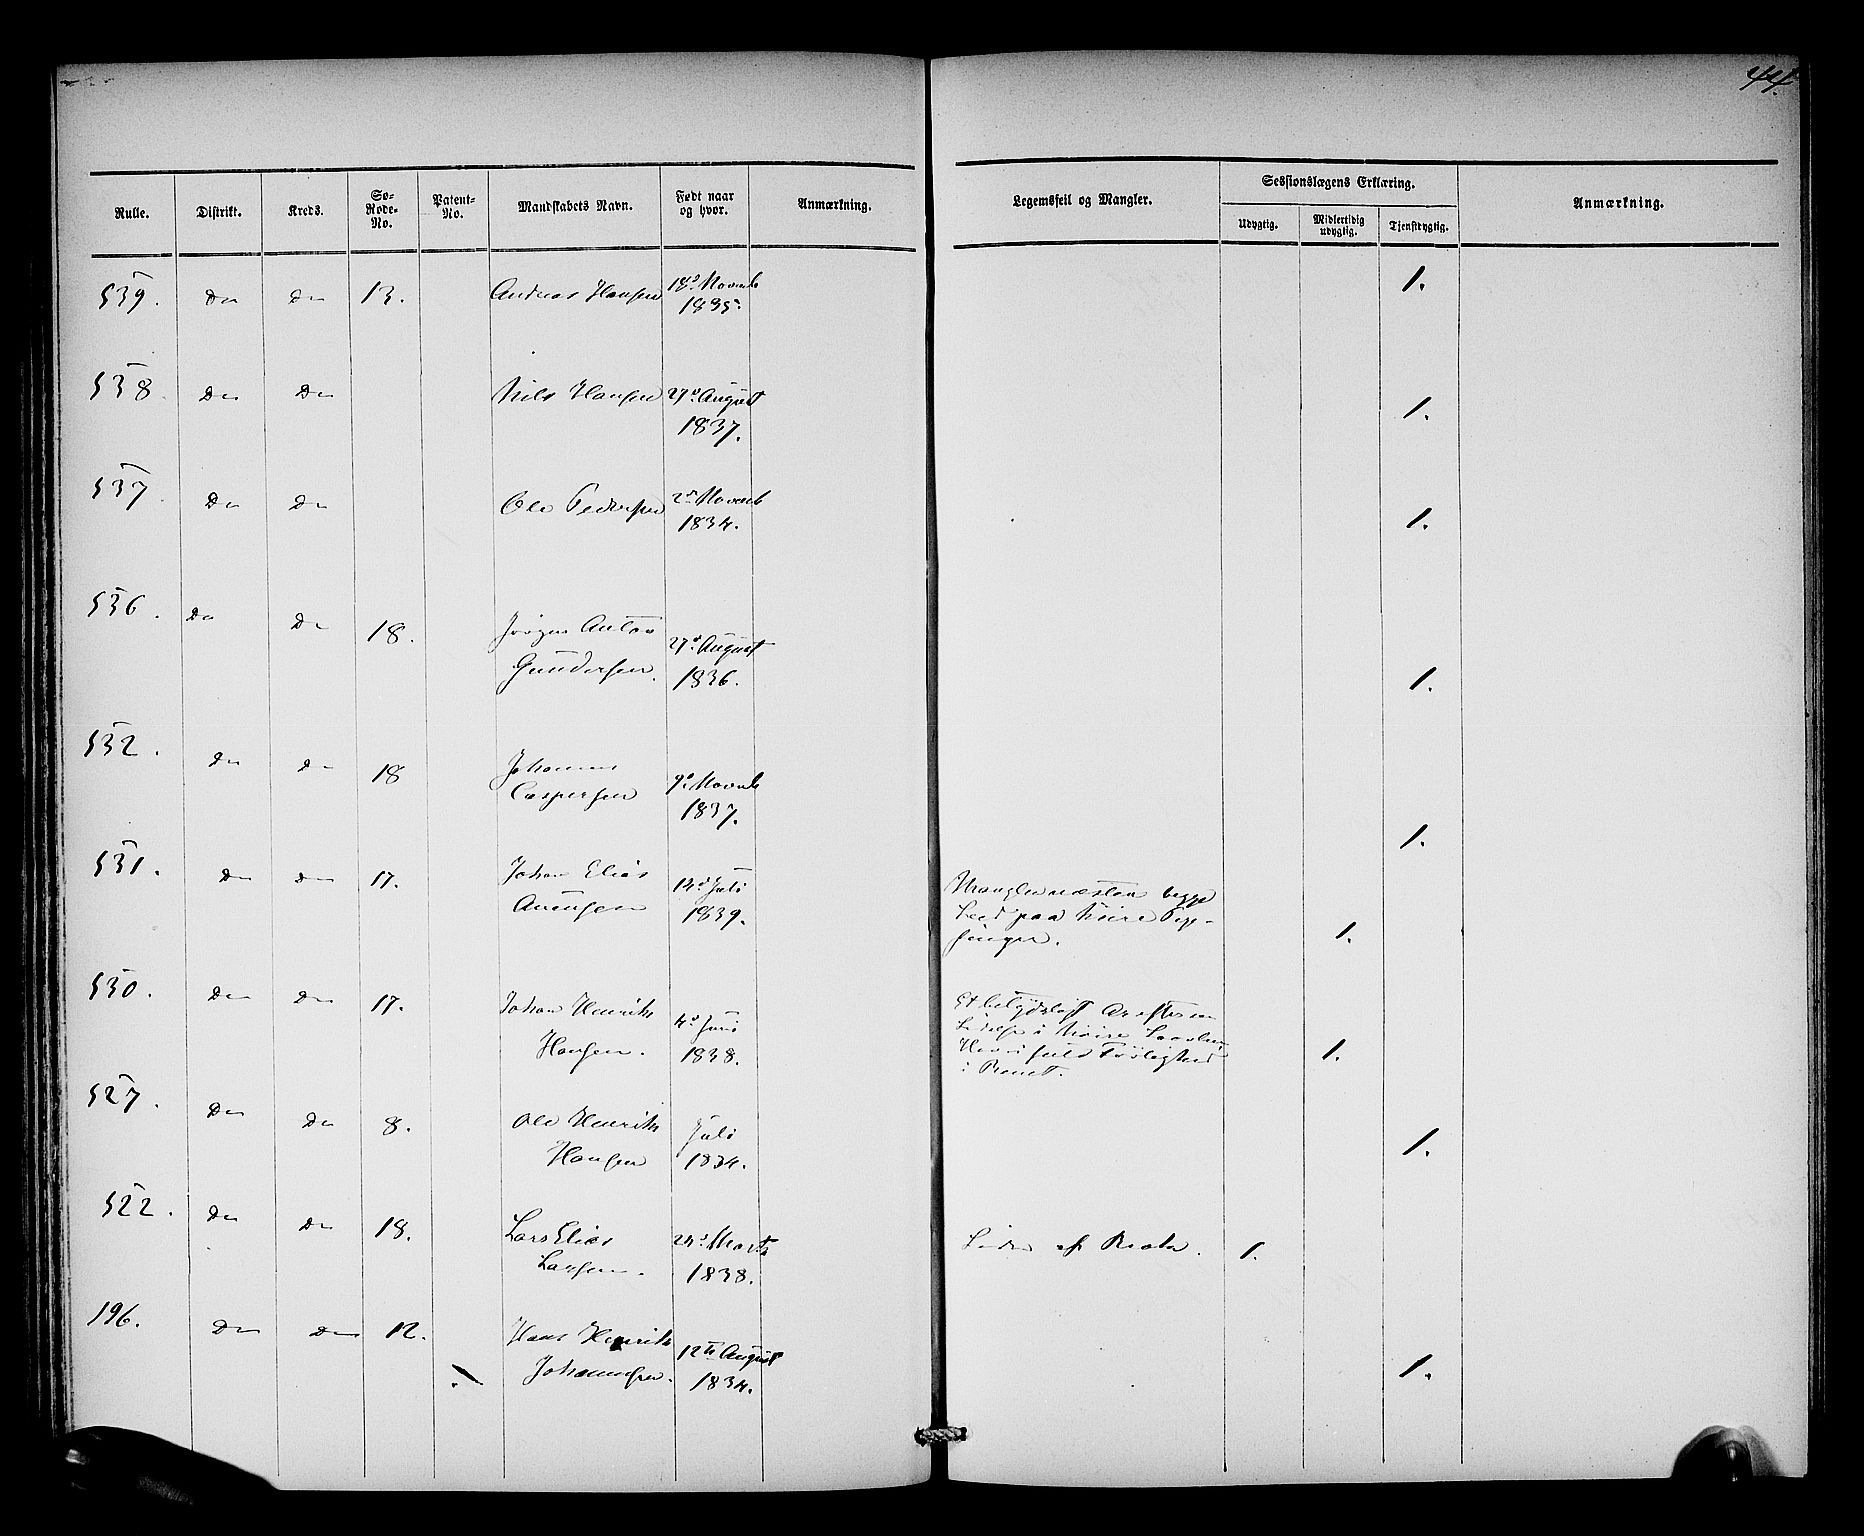 44.
Rulle. Distrikt. Kreds. Sø-Rode-No. Patent-No. Mandskabets Navn. Født naar og hvor. Anmærkning.
Legemsfeil og Mangler. Sessionslægens Erklæring. Anmærkning.
Udygtig. Midlertidig udygtig. Tjenstdygtig.
539. Do Do 13. Andreas Hansen 18de Novemb 1.
1835.
538. Do Do Nils Hansen 27de August 1.
1837.
537. Do Do Ole Pedersen 2den Novemb 1.
1834.
536. Do Do 18. Jörgen Anton 27de August
Gundersen. 1836. 1.
532. Do Do 18 Johannes
Caspersen 9de Novemb
1837. 1.
531. Do Do 17. Johan Elias 13de Juli Mangler næsten begge
Arensen 1839. Leed paa höire Pege- 1.
finger.
530. Do Do 17. Johan Henrik 4de Juni Et betydeligt Ar efter en
Lidelse i höire
Hansen. 1838. fuld 1.
i
527. Do Do 8. Ole Henrik Juli 1.
Hansen 1834.
522. Do Do 18. Lars Elias 24de Marts Lider af Brok. 1.
Larsen. 1838.
196. Do Do 12. Hans Henrik 12te August 1.
Johannesen. 1834.